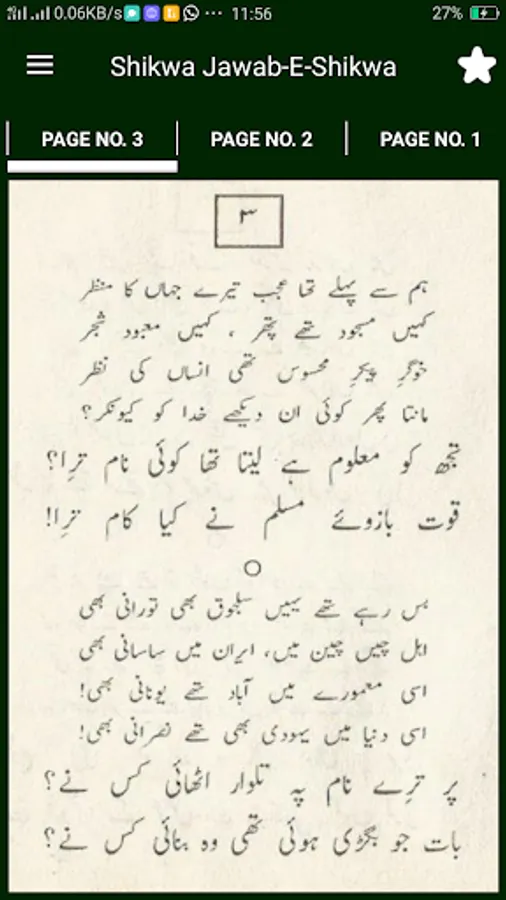 0.06KB/s ... 11:56 27%
Shikwa Jawab-E-Shikwa
PAGE NO. 3 PAGE NO. 2 PAGE NO. 1
۳
ہم سے پہلے تھا عجب تیرے جہاں کا منظر
کہیں مسجود تھے پتھر ، کہیں معبود شجر
خوگرِ پیکرِ محسوس تھی انساں کی نظر
مانتا پھر کوئی ان دیکھے خدا کو کیونکر؟
تجھ کو معلوم ہے لیتا تھا کوئی نام ترا؟
قوت بازوئے مسلم نے کیا کام ترا!
بس رہے تھے یہیں سلجوق بھی تورانی بھی
اہل چیں چین میں، ایران میں ساسانی بھی
اسی معمورے میں آباد تھے یونانی بھی!
اسی دنیا میں یہودی بھی تھے نصرانی بھی!
پر ترے نام پہ تلوار اٹھائی کس نے؟
بات جو بگڑی ہوئی تھی وہ بنائی کس نے؟